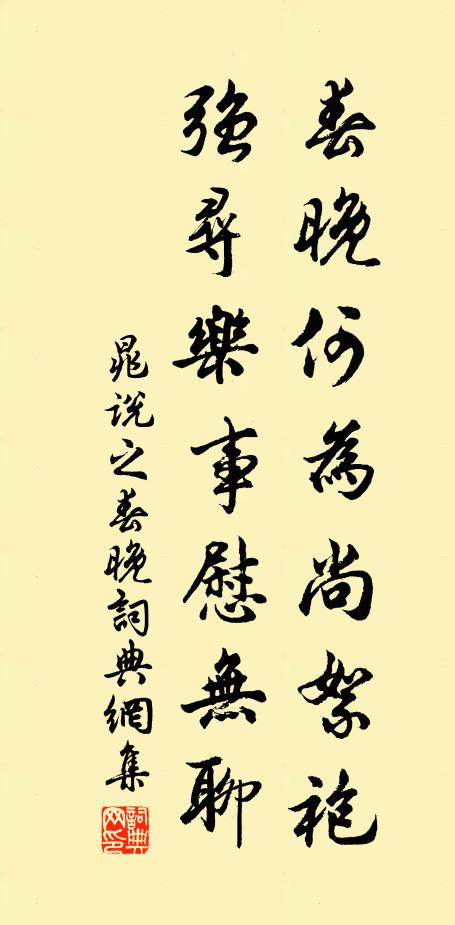 春晚何為尚絮袍
強尋樂事慰無聊
晁說之春晚詞典網集
詞典網印